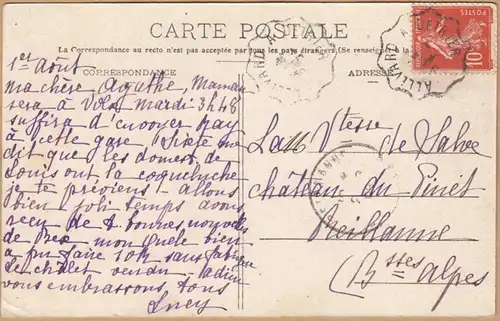 CARTE POSTALE
La Correspondance au recto n'est pas acceptée par tous les pays étrangers (Se renseigner à la
CORRESPONDANCE
ADRESSE
POSTES
10
ALLEVARD
ALLEVARD A
1er Août
ma chère Agathe, Maman
sera à Volx mardi 3h48
suffira d'envoyer
à cette gare
dit que les domest. de
Louis ont la coqueluche
je te préviens - allons
bien - joli temps avons
reçu de t. bonnes
de mon bien
a pu faire 10k sans fatigue
Le châlet vendu
vous embrassons tous
Lucy
La Vtesse de Salve
château du Pinet
Reillanne
(Bsses Alpes)